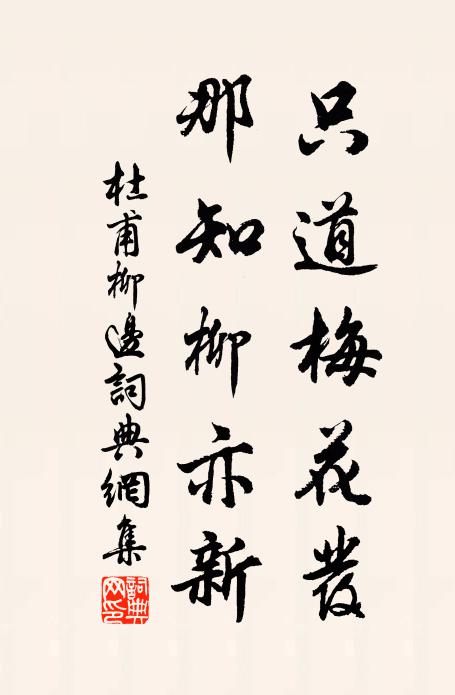 只道梅花發
那知柳亦新
杜甫柳邊詞典網集
詞典網印